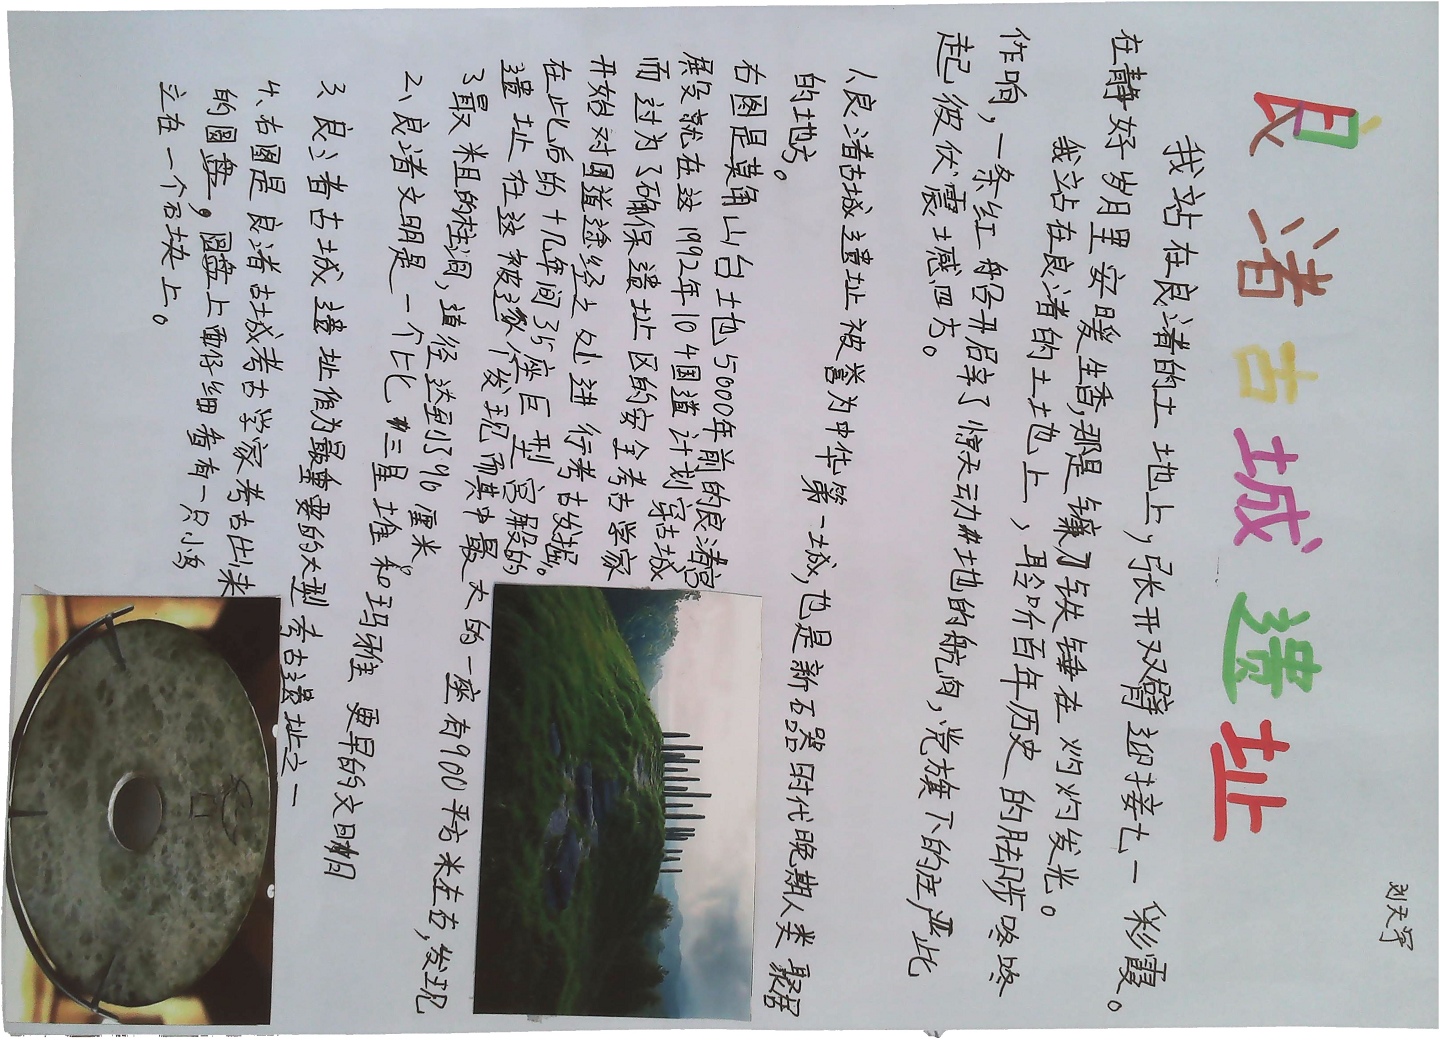 刘天泽
良渚古城遗址
我站在良渚的土地上，张开双臂迎接七一彩霞。
在静好岁月里安暖生香，那是镰刀铁锤在灼灼发光。
我站在良渚的土地上，聆听百年历史的脚步咚咚
作响，一条红船开启了惊天动地的航向，党旗下的庄严此
起彼伏震撼四方。
1、良渚古城遗址被誉为中华第一城，也是新石器时代晚期人类聚居
的地方。
右图是莫角山台土地5000年前的良渚宫
殿就在这1992年104国道计划穿古城
而过为了确保遗址区的安全考古学家
开始对国道途经之处进行考古发掘。
在此后的十几年间35座巨型宫殿的
遗址在这被逐个发现而其中最大的一座有900平方米左右，发现
3最粗的柱洞，直径达到了96厘米。
2、良渚文明是一个比三星堆和玛雅更早的文明
3、良渚古城遗址作为最重要的大型考古遗址之一
4、右图是良渚古城考古学家考古出来
的圆盘，圆盘上面仔细看有一只小鸟
立在一个石块上。